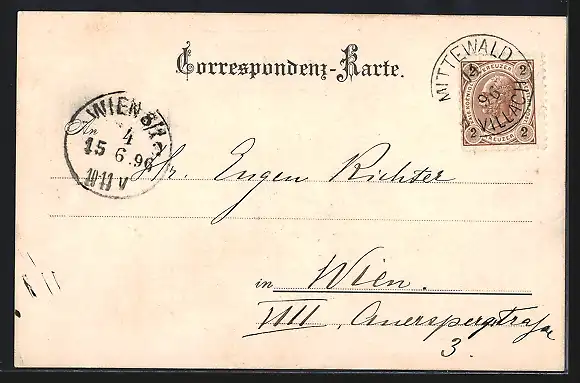 Correspondenz-Karte.
MITTEWALD
96
VILLACH
2 KREUZER 2
2 KREUZER 2
WIEN 8/1
4
15 6.96
10-11 V
An
Hr. Eugen Richter
in Wien.
VIII, Auerspergstraße
3.